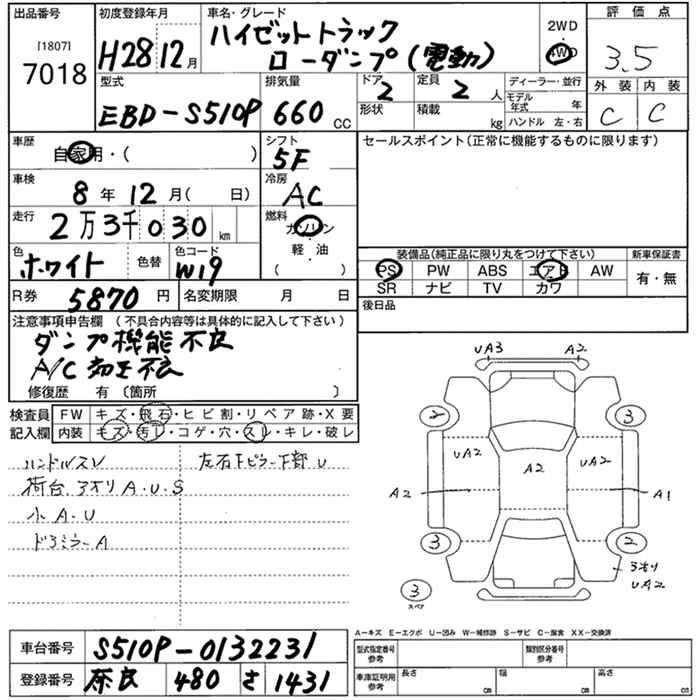 出品番号 [1807] 7018
初度登録年月 H28 12月
車名・グレード ハイゼットトラック
ローダンプ(電動)
2WD ・ 4WD
評価点 3.5
外装 C 内装 C
型式 EBD-S510P
排気量 660 CC
ドア 2
形状
定員 2 人
積載 kg
ディーラー・並行
モデル年式 年
ハンドル 左・右
車歴 自家用・( )
シフト 5F
セールスポイント(正常に機能するものに限ります)
車検 8年 12月( 日)
冷房 AC
走行 2万3千030 km
燃料 ガソリン・軽・油 ( )
色 ホワイト 色替
色コード W19
装備品(純正品に限り丸をつけて下さい)
PS PW ABS エアB AW
SR ナビ TV カワ
新車保証書 有・無
R券 5870円
名変期限 月 日
後日品
注意事項申告欄 (不具合内容等は具体的に記入して下さい)
ダンプ機能不良
A/C 効き不良
修復歴 有〔箇所 〕
検査員記入欄
FW キズ・飛石・ヒビ割・リペア跡・X要
内装 キズ・汚レ・コゲ・穴・スレ・キレ・破レ
ハンドルスレ
左右Fピラー下部 U
荷台.アオリ A.U.S
小 A.U
ドアミラーA
UA3 A2
2 3
UA2 A2 UA2
A2 A1
3 2
アオリ UA2
3 スペア
A-キズ E-エクボ U-凹み W-補修跡 S-サビ C-腐食 XX-交換済
車台番号 S510P-0132231
登録番号 奈良 480 さ 1431
型式指定番号 参考
類別区分番号 参考
車庫証明用 参考
長さ cm
幅 cm
高さ cm